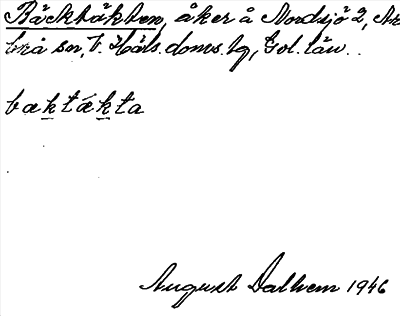 Bäcktäkten, åker å Nordsjö 2, Ar
brå sn, V. Häls. doms. tg, Gol. län.
bæktækta
August Dalhem 1946